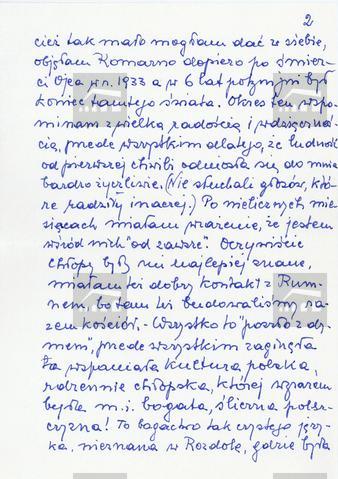 2
cież tak mało mogłam dać ze siebie,
objęłam Komarno dopiero po śmier-
ci Ojca w r. 1933 a w 6 lat potym już był
koniec tamtego świata. Okres ten wspo-
minam z wielką radością i wdzięczno-
ścią, przede wszystkim dlatego, że ludność
od pierwszej chwili odniosła się do mnie
bardzo życzliwie. (Nie słuchali głosów, któ-
re radziły inaczej.) Po nielicznych mie-
siącach miałam wrażenie, że jestem
wśród nich "od zawsze". Oczywiście
chłopy byli mi najlepiej znane,
miałam też dobry kontakt z Rum-
nem, bo tam też budowaliśmy ra-
zem kościół. - Wszystko to "poszło z dy-
mem", przede wszystkim zaginęła
ta wspaniała kultura polska,
rdzennie chłopska, której wyrazem
była m.i. bogata, śliczna polsz-
czyzna! To bogactwo tak czystego języ-
ka, nieznana w Rozdole, gdzie była